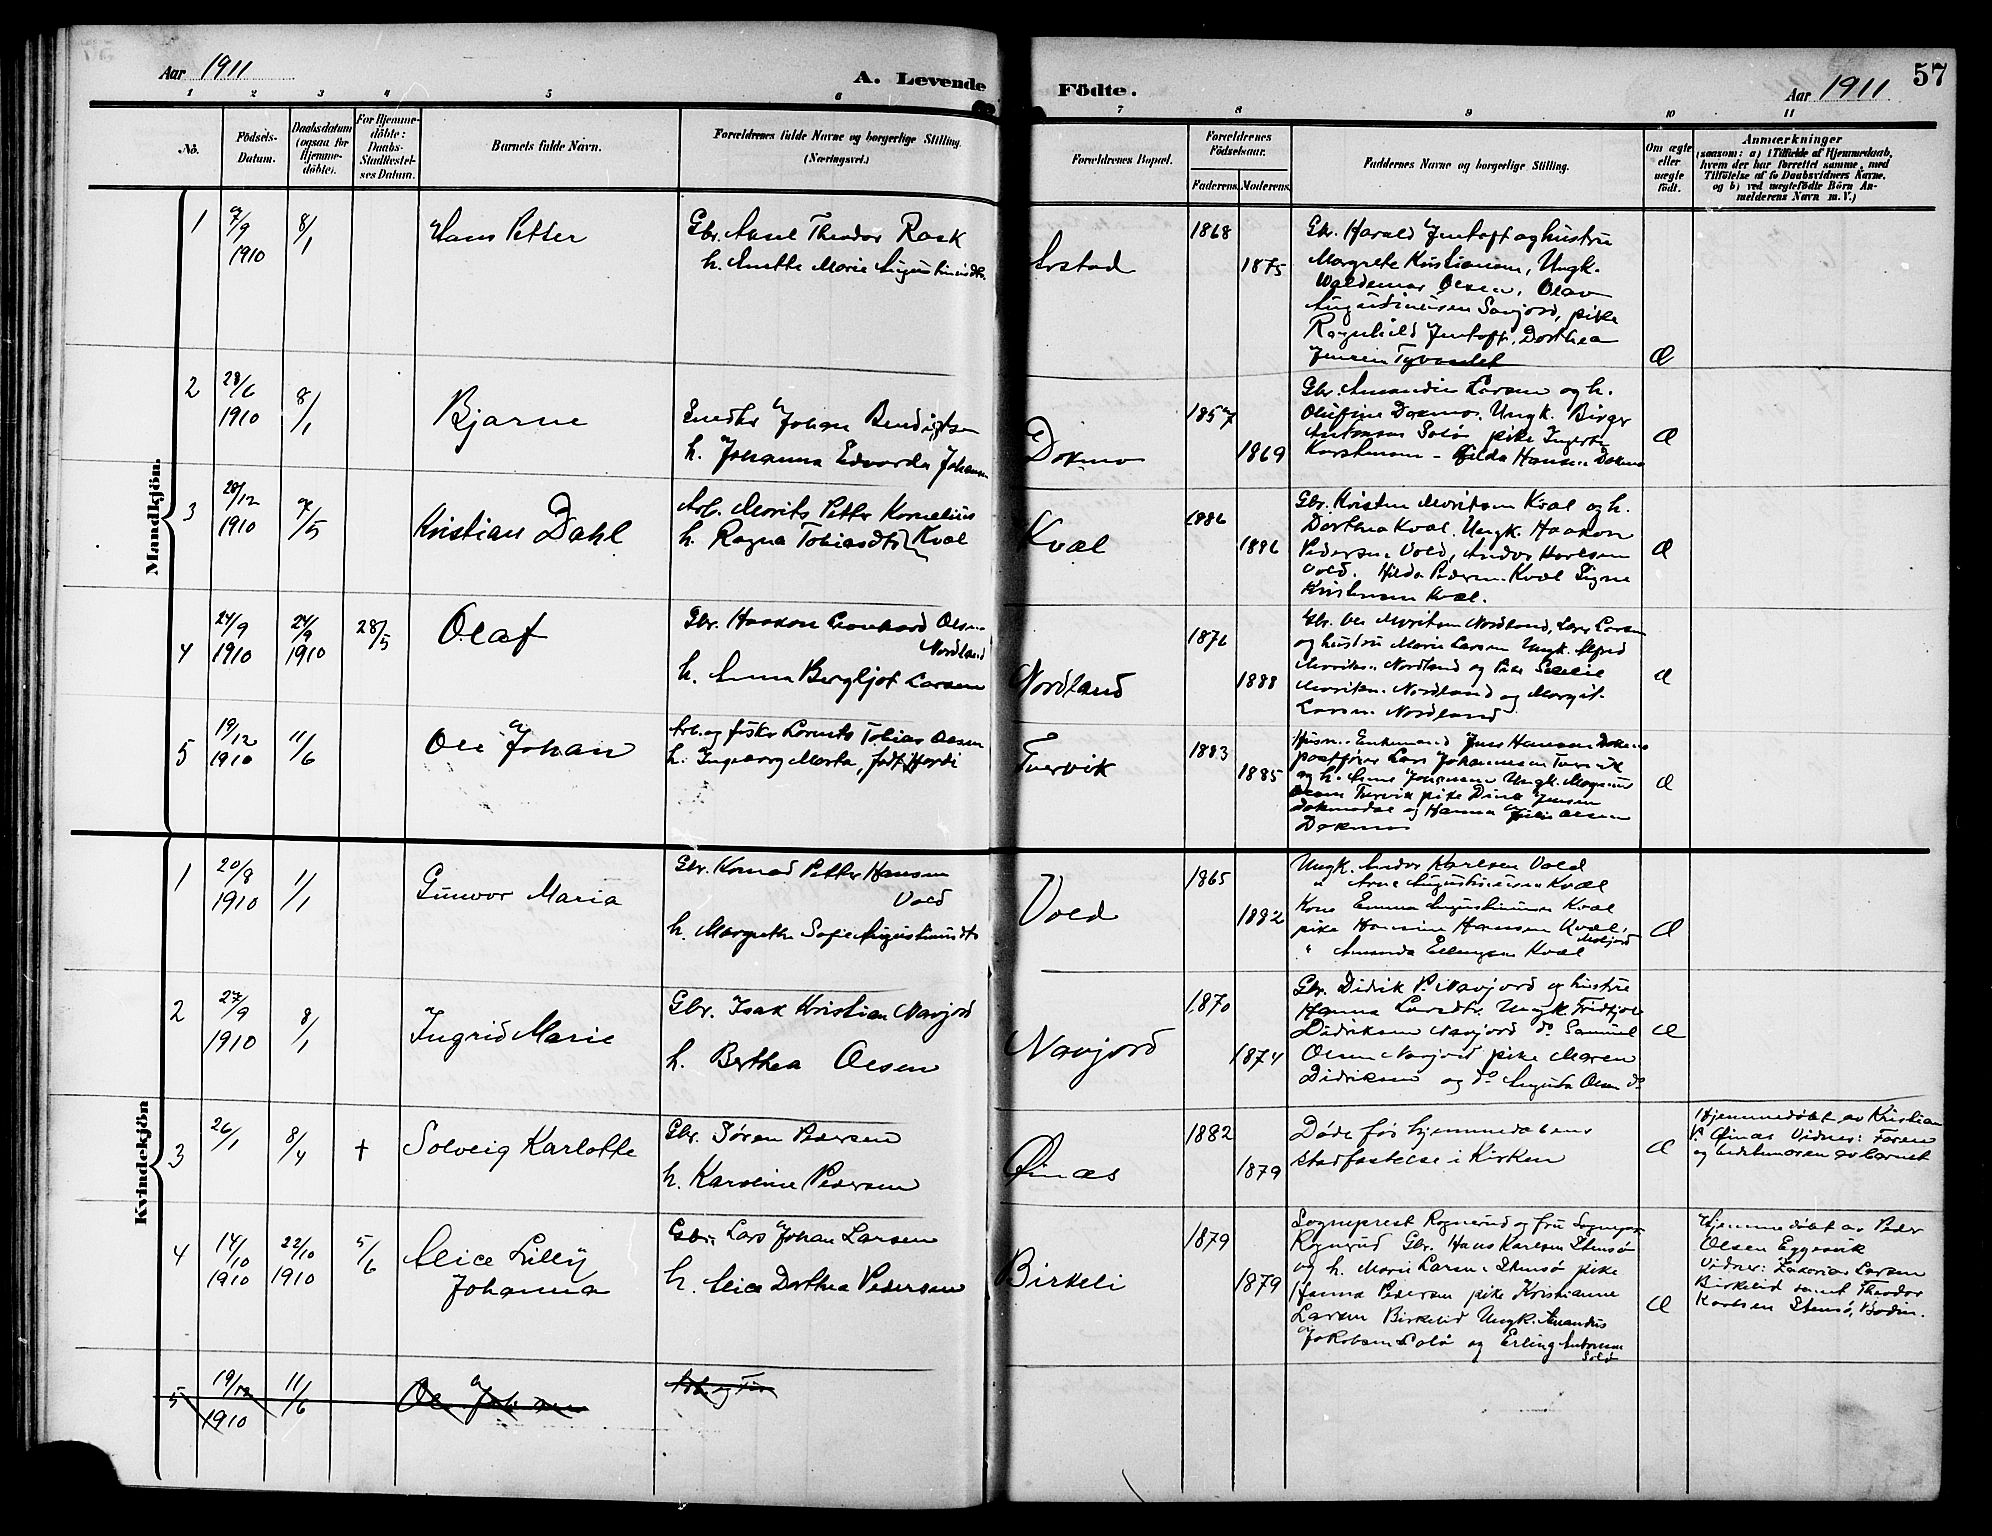 Aar 1911
A. Levende
Födte.
Aar 1911
57
1 2 3 4 5 6 7 8 9 10 11
No.
Födsels-Datum.
Daabsdatum (ogsaa for Hjemmedöbte).
For Hjemmedöbte: Daabs-Stadfæstelses Datum.
Barnets fulde Navn.
Forældrenes fulde Navne og borgerlige Stilling.
(Næringsvei.)
Forældrenes Bopæl.
Forældrenes Födselsaar.
Faderens.
Moderens.
Faddernes Navne og borgerlige Stilling.
Om ægte eller uægte födt.
Anmærkninger
(saasom: a) i Tilfælde af Hjemmedaab,
hvem der har forrettet samme, med
Tilföielse af to Daabsvidners Navne,
og b) ved uægtefödte Börn An-
melderens Navn m. V.)
Mandkjön.
1
7/9 1910
8/1
Hans Petter
Gbr. Axsel Theodor Rask
h. Anette Marie Augustinusdtr.
Arstad
1868
1875
Gbr. Harald Jentoft og hustru
Margrete Kristiansen, Ungk.
Waldemar Olsen, Olav
Augustinussen Savjord, pike
Ragnhild Jentoft, Dorthea
Jensen Tyvandet
Æ
2
28/6 1910
8/1
Bjarne
Johan Bendigtsen
h. Johanna Edvarda Johansen
Dokmo
1857
1869
Gbr. Larsen og h.
Olufine Dokmo. Ungk. Birger
Antonsen Solø pike
Hansen Dokmo
Æ
3
28/12 1910
7/5
Kristian Dahl
Arb. Morits Petter Kornelius
h. Ragna Tobiasdtr. Kvæl
Kvæl
1886
1886
Gbr. Kristen Moritsen Kvæl og h.
Dorthea Kvæl. Ungk. Haakon
Pedersen Vold, Andor Karlsen
Vold. Hilda Pedersen Kvæl Signe
Kristensen Kvæl.
Æ
4
24/9 1910
24/9 1910
28/5
Olaf
Gbr. Haakon Leonhard Olsen
Nordland
h. Anna Bergljot Larsen
Nordland
1876
1888
Gbr. Ole Moritsen Nordland, Lars Larsen
og hustru Marie Larsen Ungk. Alfred
Moritsen Nordland og Pike
Moritsen Nordland og Margit
Larsen Nordland
Æ
5
19/12 1910
11/6
Ole Johan
Arb. og fisker Lornts Tobias Olsen
h. Ingeborg Marta, født Hordi
Tvervik
1883
1885
Enkemand Jens Hansen Dokmo
postfører Lars Johannesen Tvervik
og h. Anna Johansen Ungk. Magnus
Olsen Tvervik pike Dina Jensen
Dokmodal og Hanna Olsen
Dokmo
Æ
Kvindekjön
1
20/8 1910
1/1
Gunvor Maria
Gbr. Konrad Petter Hansen
Vold
h. Margrethe Sofie Augustinusdtr
Vold
1865
1882
Ungk. Andor Karlsen Vold
" Arne Augustinussen Kvæl
Kone Emma Augustinussen Kvæl
pike Hansine Hansen Kvæl,
" Amanda Ellingsen Kvæl
Æ
2
27/9 1910
8/1
Ingrid Marie
Gbr. Isak Kristian Navjord
h. Berthea Olsen
Navjord
1870
1874
Gbr. Didrik P. Navjord og hustru
Hanna Larsdtr. Ungk. Fridtjof
Didriksen Navjord do Samuel
Olsen Navjord pike Maren
Didriksen og do Augusta Olsen do
Æ
3
26/1
8/4
†
Solveig Karlotte
Gbr. Søren Pedersen
h. Karoline Pedersen
Øinæs
1882
1879
Døde før hjemmedaabens
stadfæstelse i Kirken
Æ
Hjemmedøbt av Kristian
P. Øinæs Vidner: Faren
og bedstemoren av barnet
4
14/10 1910
22/10 1910
5/6
Alice Lilly
Johanna
Gbr. Lars Johan Larsen
h. Alice Dorthea Pedersen
Birkeli
1879
1879
Sogneprest Rognerud og fru Sogneprest
Rognerud Gbr. Hans Karlsen Stensø
og h. Marie Larsen Stensø pike
Hanna Pedersen pike Kristianne
Larsen Birkelid Ungk. Amandus
Jakobsen Solø og Erling Antonsen
Solø
Æ
Hjemmedøbt av Peder
Olsen Eggesvik
Vidner: Zakarias Larsen
Birkelid samt Theodor
Karlsen Stensø, Bodin.
5
19/12 1910
11/6
Ole Johan
Arb. og Fis